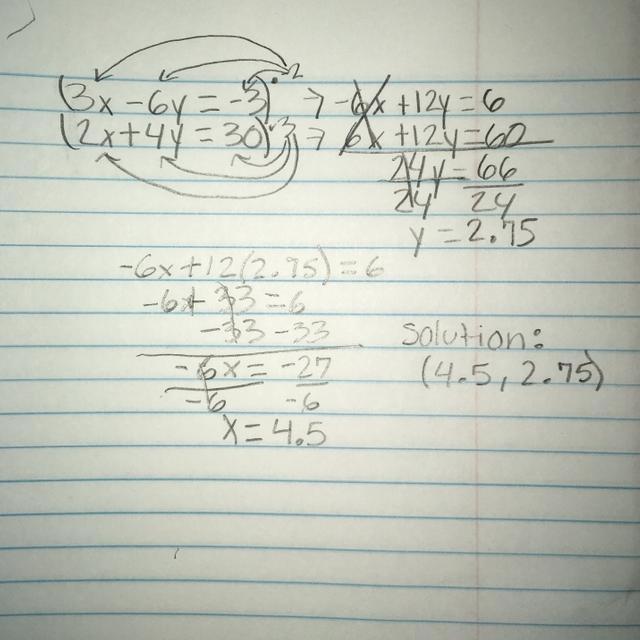 (3x - 6y = -3) · -2 → -6x + 12y = 6
(2x + 4y = 30) 3 → 6x + 12y = 60
24y = 66
24 24
y = 2.75
-6x + 12(2.75) = 6
-6x + 33 = 6
-33 -33
Solution:
-6x = -27
(4.5, 2.75)
-6 -6
x = 4.5